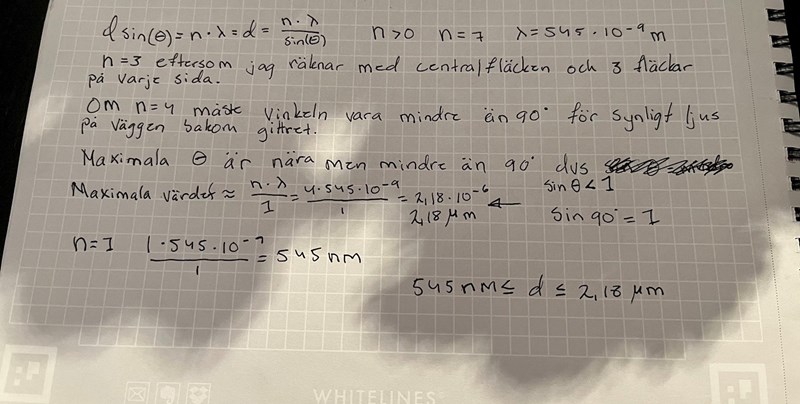 d sin(θ) = n · λ = d = n · λ / sin(θ)   n > 0   n = 7   λ = 545 · 10⁻⁹ m
n = 3 eftersom jag räknar med centralfläcken och 3 fläckar
på varje sida.
Om n = 4 måste vinkeln vara mindre än 90° för synligt ljus
på väggen bakom gittret.
Maximala θ är nära men mindre än 90° dvs
sin θ < 1
Maximala värdet ≈ n · λ / 1 = 4 · 545 · 10⁻⁹ / 1 = 2,18 · 10⁻⁶ ←
2,18 μm
sin 90° = 1
n = 1   1 · 545 · 10⁻⁹ / 1 = 545 nm
545 nm ≤ d ≤ 2,18 μm
WHITELINES®